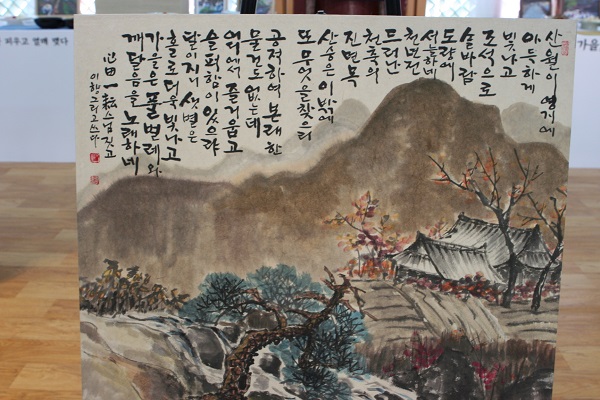 산월이 영겁에
아득하게
빛나고
조석으로
솔바람
도량에
서늘하네
천년전
드러난
천축의
진면목
산승은 이밖에
또 무엇을 찾으리
공적하여 본래 한
물건도 없는데
어디에서 즐거웁고
슬퍼함이 있으랴
달이 지니 샛별은
홀로 더욱 빛나고
가을은 풀벌레와
깨달음을 노래하네
心田一耘스님 짓고
피우고 열매 맺다
가을